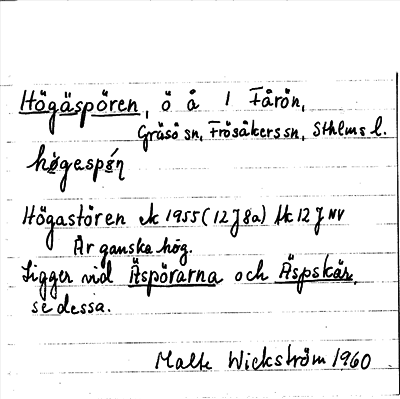 Högäspören, ö å 1 Fårön,
Gräsö sn, Frösåkers sn, Sthlms l.
Högastören ek 1955 (12J8a) bk 12J NV
Är ganska hög.
Ligger vid Äspörarna och Äspskär,
se dessa.
Malte Wickström 1960